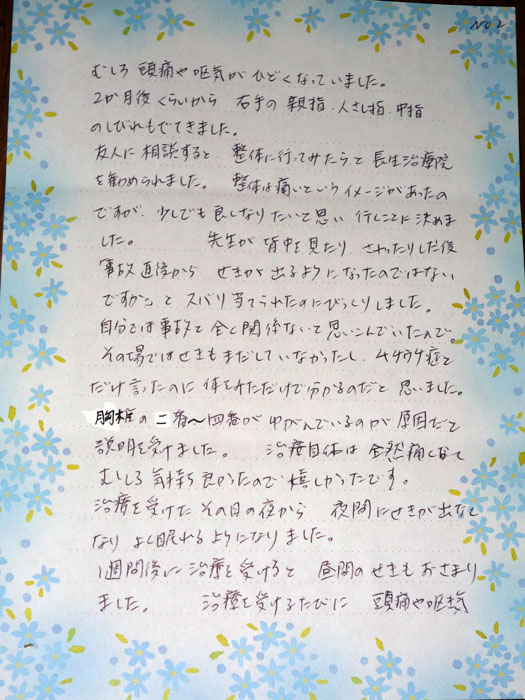 No 2
むしろ 頭痛や嘔気が ひどくなっていました。
2か月後くらいから 右手の 親指、人さし指、中指
のしびれもでてきました。
友人に 相談すると 整体に行ってみたらっと 長生治療院
を勧められました。 整体は痛いという イメージがあったの
ですが、少しでも 良くなりたいと思い 行くことに 決めま
した。 先生が 背中を見たり、さわったりした後
「事故 直後から せきが 出るように なったのではない
ですか」と ズバリ 当てられたのにびっくりしました。
自分では事故と 全く関係ないと 思いこんでいたので。
その場ではせきも まだしていなかったし ムチウチ症と
だけ 言ったのに 体をみただけで分かるのだと 思いました。
胸椎の 二番〜四番が ゆがんでいるのが 原因だと
説明を受けました。 治療自体は 全然 痛くなくて
むしろ 気持ち 良かったので 嬉しかったです。
治療を受けた その日の夜から 夜間にせきが 出なく
なり よく眠れるようになりました。
1週間後に 治療を受けると 昼間の せきも おさまり
ました。 治療を受けるたびに 頭痛や嘔気